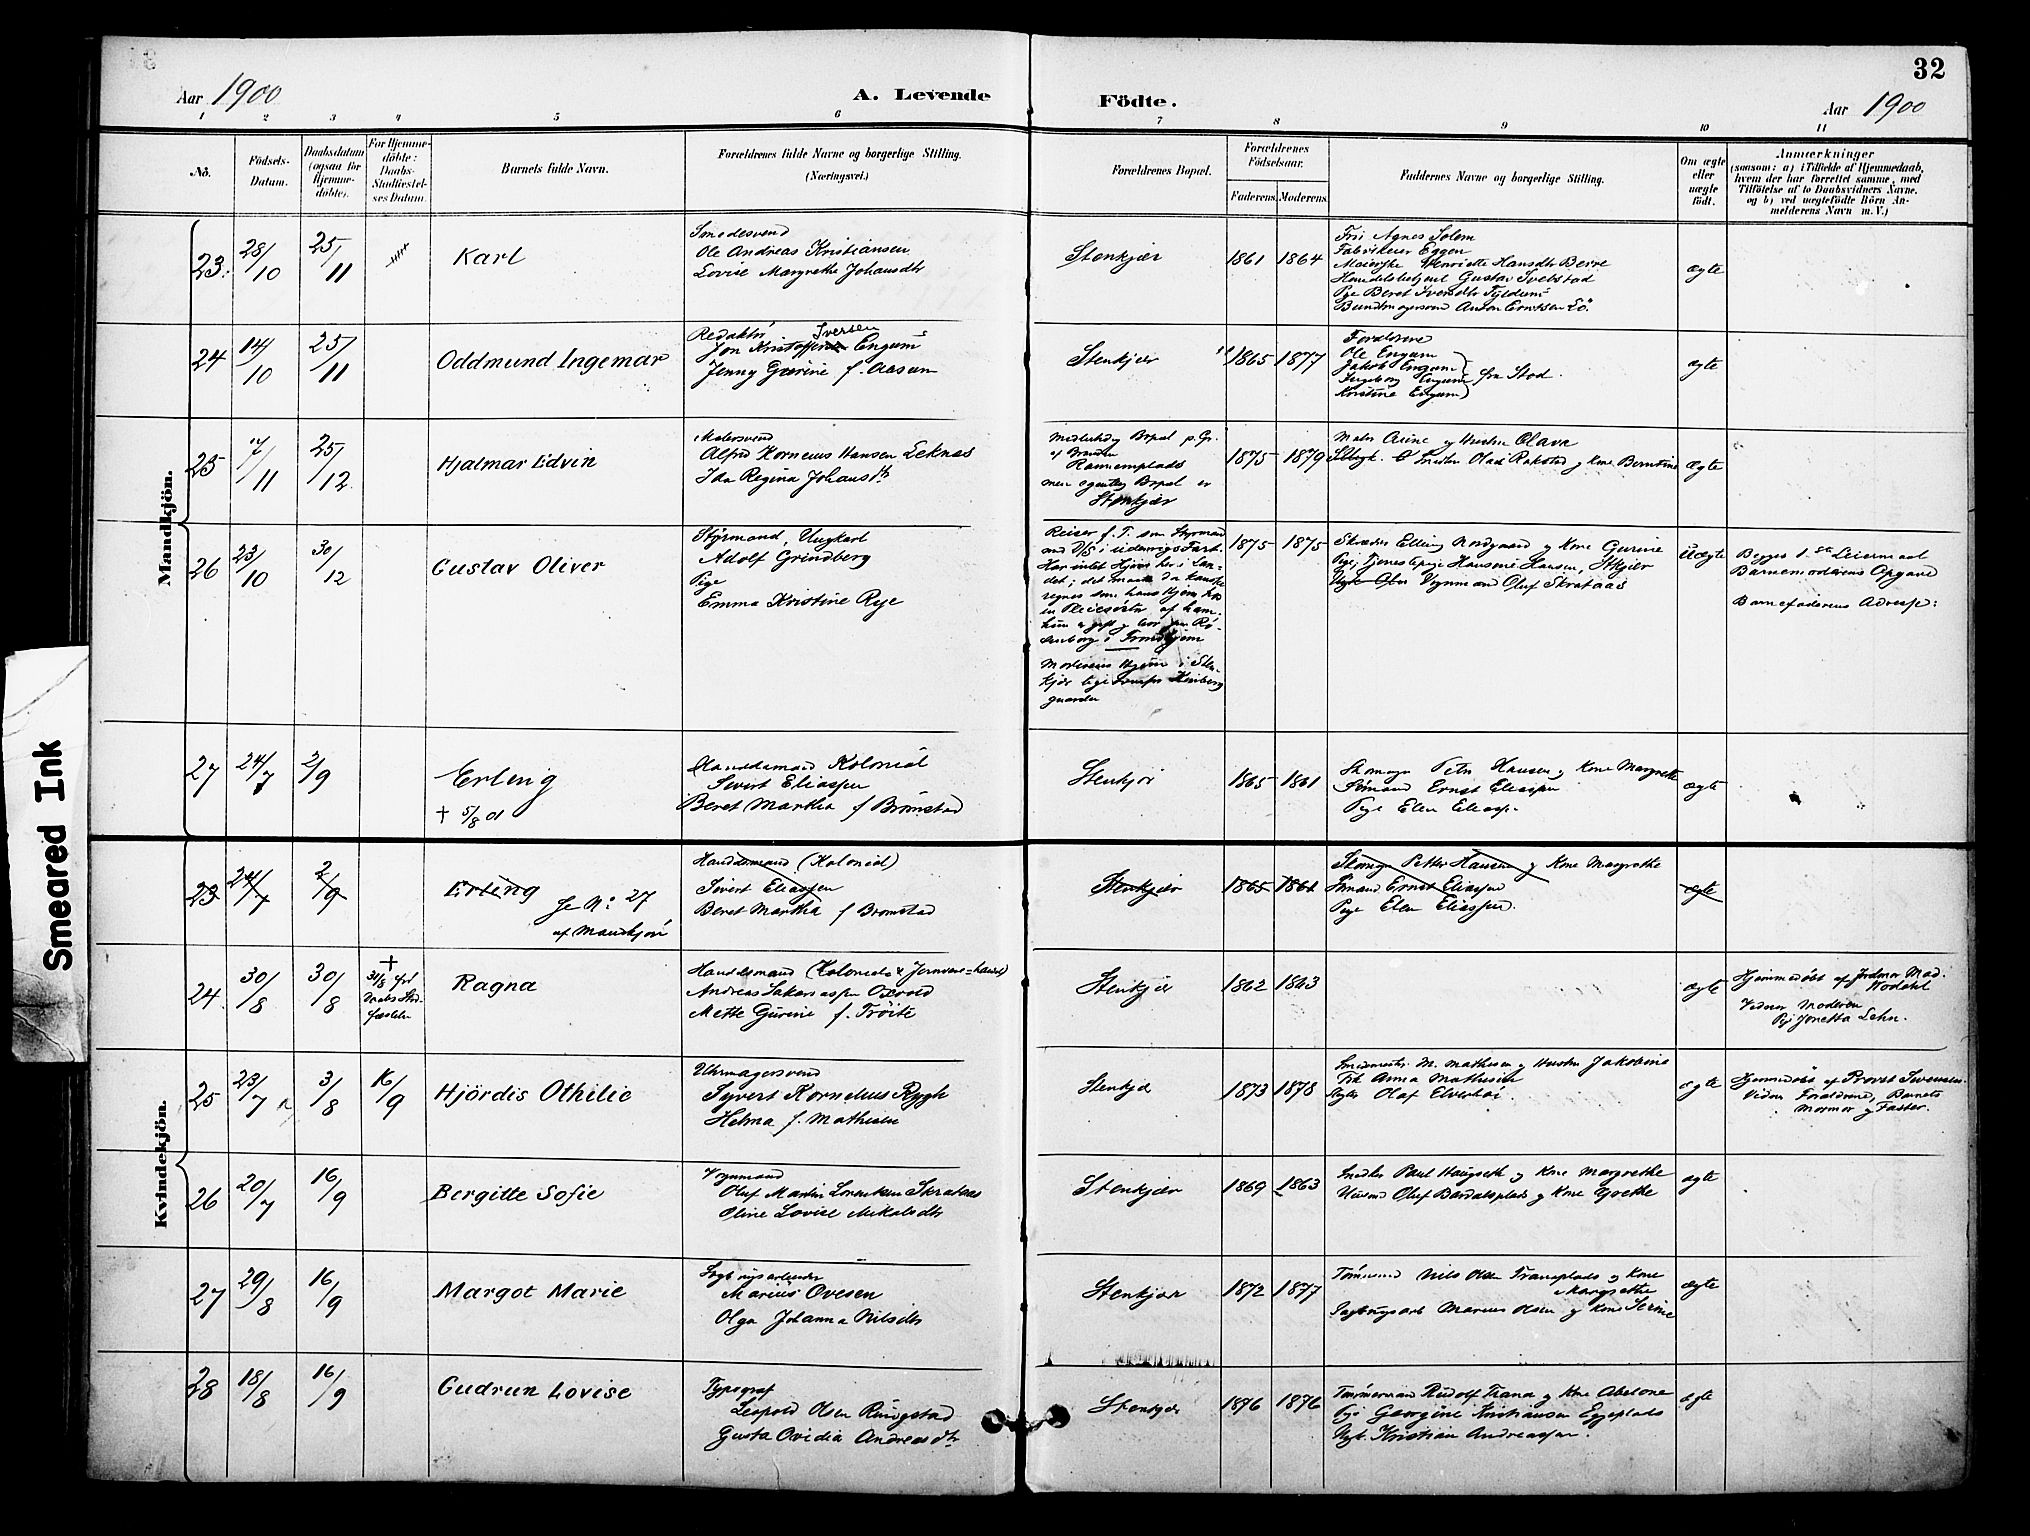 32
Aar 1900
A. Levende
Födte.
Aar 1900
1 2 3 4 5 6 7 8 9 10 11
No.
Födsels-
Datum.
Daabsdatum
(ogsaa for
Hjemme-
döbte).
For Hjemme-
döbte:
Daabs-
Stadfæstel-
ses Datum.
Barnets fulde Navn.
Forældrenes fulde Navne og borgerlige Stilling.
(Næringsvei.)
Forældrenes Bopæl.
Forældrenes
Födselsaar.
Faderens. Moderens.
Faddernes Navne og borgerlige Stilling.
Om ægte
eller
uægte
födt.
Anmærkninger
(saasom: a) i Tilfælde af Hjemmedaab,
hvem der har forrettet samme, med
Tilföielse af to Daabsvidners Navne.
og b) ved uægtefödte Börn An-
melderens Navn m. V.)
Mandkjön.
23. 28/10 25/11
Karl
Smedesvend
Ole Andreas Kristiansen
Lovise Margrethe Johansdtr
Stenkjær
1861 1864
Frü Agnes Solem
Fabrikeier Eggen
Meierske Henriette Hansdtr Berre
Handelsbetjent Gustav Svebstad
Pige Beret Svendtr Fyldum
Bundtmagersvend Anton Erntsen Lö.
ægte
24 14/10 25/11
Oddmund Ingemar
Redaktör
Iversen
Jon Kristoffer Engum
Jenny Gurine f. Aasum
Stenkjær
1865 1877
Forældrene
Ole Engum
Jakob Engum
Ingeborg Engum fra Stod.
Kristine Engum
ægte
25 17/11 25/12
Hjalmar Edvin
Malersvend
Alfred Kornelius Hansen Leknas
Ida Regina Johansdtr
Midlertidig Bopæl p. Gr.
af Branden
Rannemplads
men egentlig Bopæl er
Stenkjær
1875 1879
Maler Arine og Hustru Olava
Smeden Oladi Rakstad og Kone Berntine
Ægte
26 23/10 30/12
Gustav Oliver
Styrmand, Ungkarl
Adolf Grindberg
Pige
Emma Kristine Rye
Reiser f. T. som Styrmand
med D/S i udenrigs Fart.
Har intet Hjem her i Lan-
det; det maa da kanske
regnes som hans Hjem hos
en Pleiesöster af ham.
hun er gift og bor paa Rö-
senborg i Trondhjem
Moderens Hjem i Sten-
kjær lige
gaarden
1875 1875
Skræder Elling Nordgaard og Kone Gurine
Pige, Tjenestepige Hansine Hansen, Stkjær
Vognmand Oluf Skrataas
Uægte
Begges 1ste Leiermaal
Barnemoderens Opgave
Barnefaderens Adresse:
27 24/7 2/9
Erling
† 5/8 01
Handelsmand Kolonial
Sivert Eliassen
Beret Martha f Brömstad
Stenkjær
1865 1861
Skomager Peter Hansen og Kone Margrethe
Sömand Ernst Eliassen
Pige Elen Eliassen
ægte
Kvindekjön.
23 24/7 2/9
Erling
Se No 27
af Mandkjön
Handelsmand (Kolonial)
Sivert Eliassen
Beret Martha f Bromstad
Stenkjær
1865 1861
Skomager Petter Hansen og Kone Margrethe
Sömand Ernst Eliassen
Pige Elen Eliassen.
ægte
24. 30/8 30/8
† 31/8 för
Daabs Stad-
fæstelse
Ragna
Handelsmand (Kolonial & Jernvare-handel)
Andreas Sakariassen Oxvold
Mette Gurine f. Tröite
Stenkjær
1862 1863
ægte
Hjemmedöbt af Jordmor Mad.
Nordahl
Vidner Moderen
Pige Jonetta Lehn.
25 23/7 3/8 16/9
Hjördis Othilie
Uhrmagersvend
Syvert Kornelius Rygh
Helma f. Mathisen
Stenkjær
1873 1878
Smedmester M. Mathisen og Hustru Jakobine
Frk Anna Mathisen
Olaf Elverhöi.
ægte
Hjemmedöbt af Provst Svensen.
Vidner Forældrene, Barnets
Mormor og Faster.
26 20/7 16/9
Bergitte Sofie
Vognmand
Oluf Martin Lorentsen Skrataas
Oline Lovise Nikolaidtr
Stenkjær
1869 1863
Snedker Paul Haugseth og Kone Margrethe
Oluf Bardalsplads og Kone Grethe
ægte
27 29/8 16/9
Margot Marie
Sagbrugsarbeider
Marius Ovesen
Olga Johanna Nilsdtr
Stenkjær
1872 1877
Tömmermand Nils Olsen Tranaplads og Kone
Margrethe
Sagbrugsarb Marius Olsen og Kone Serine
ægte
28 18/8 16/9
Gudrun Lovise
Typograf
Leopold Olsen Ringstad
Gusta Ovidia Andreasdtr
Stenkjær
1876 1876
Tömmermand Rudolf Trana og Kone Abelone
Pige Georgine Kristiansen Eggeplads
Ungk. Kristian Andreassen.
ægte
Smeared Ink